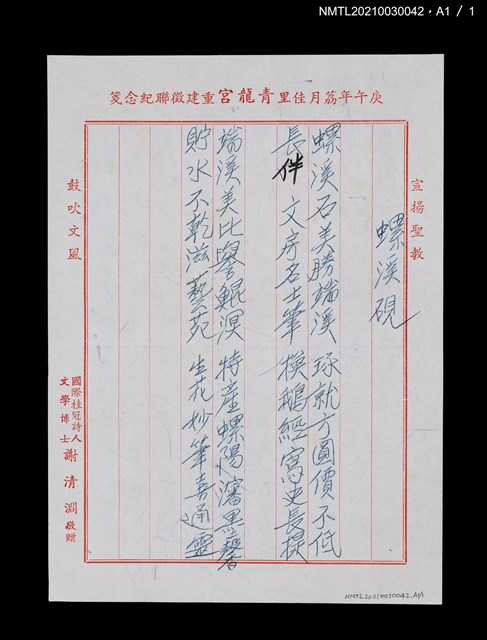 NMTL20210030042,A1 / 1
庚午年荔月佳里青龍宮重建徵聯紀念箋
宣揚聖教
螺溪硯
螺溪石美勝端溪 琢就方圓價不低
長伴文房名士筆 換鵝經寫史長提
端溪美比譽鯤溟 特產螺陽瀋黑馨
貯水不乾滋藝苑 生花妙筆喜通靈
鼓吹文風
國際桂冠詩人
文學博士
謝清淵敬贈
NMTL20210030042_A1/1